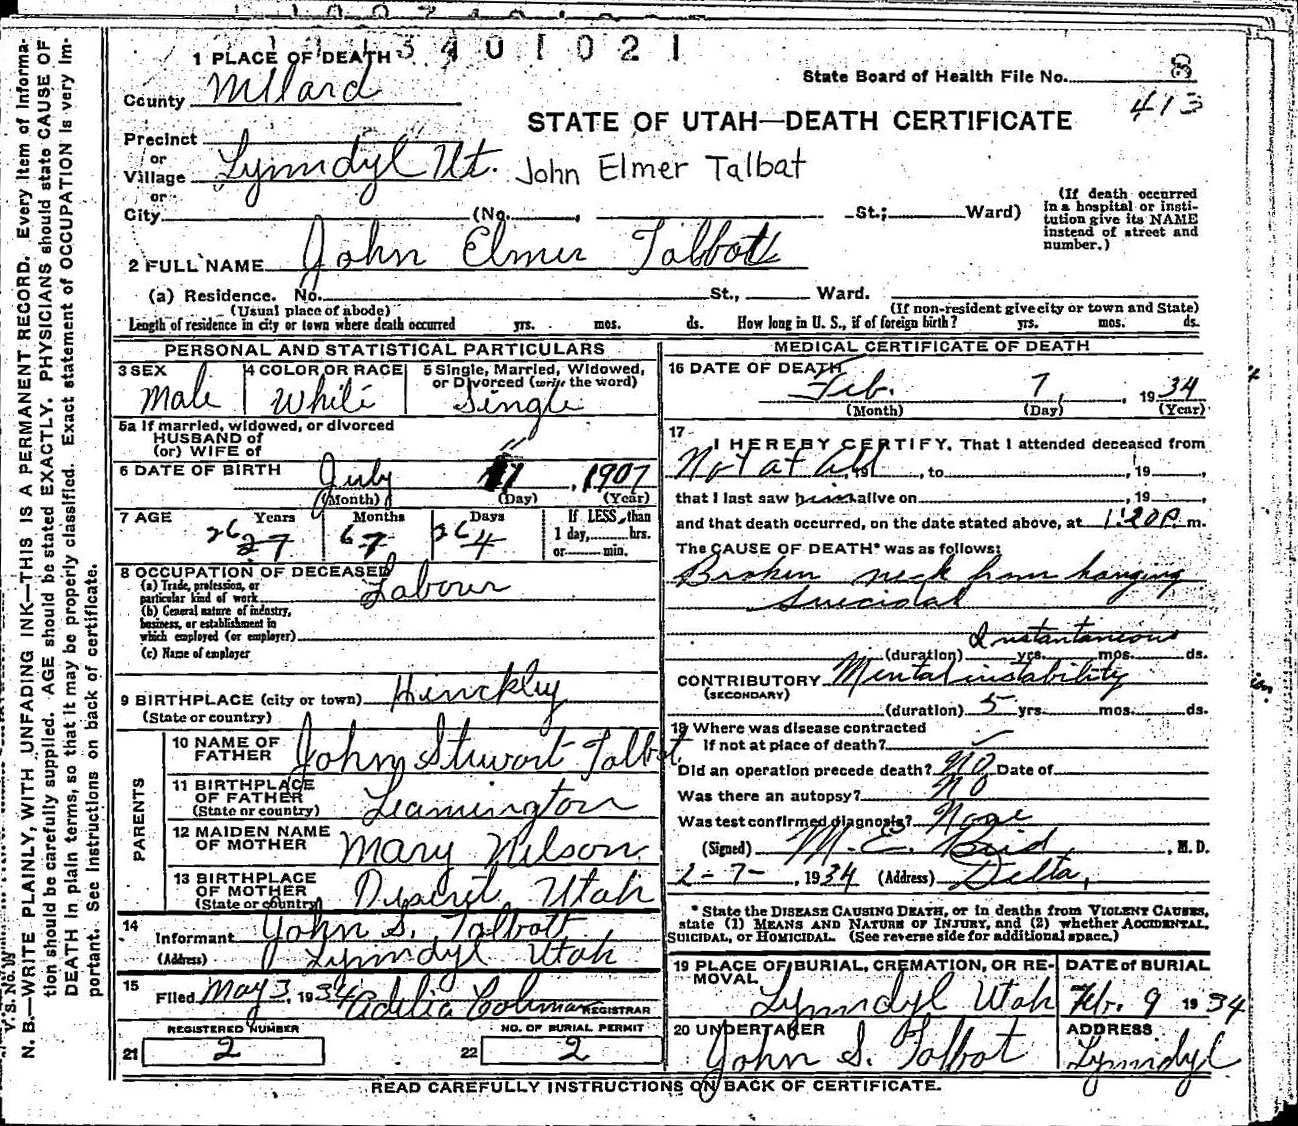 3401021
1 PLACE OF DEATH
State Board of Health File No. 8
413
County Millard
STATE OF UTAH—DEATH CERTIFICATE
Precinct
or
Village Lynndyl Ut. John Elmer Talbat
or
City (No. , St.; Ward)
(If death occurred
in a hospital or insti-
tution give its NAME
instead of street and
number.)
2 FULL NAME John Elmer Talbott
(a) Residence. No. St., Ward.
(Usual place of abode) (If non-resident give city or town and State)
Length of residence in city or town where death occurred yrs. mos. ds. How long in U. S., if of foreign birth? yrs. mos. ds.
PERSONAL AND STATISTICAL PARTICULARS
3 SEX 4 COLOR OR RACE 5 Single, Married, Widowed,
or Divorced (write the word)
Male White Single
5a If married, widowed, or divorced
HUSBAND of
(or) WIFE of
6 DATE OF BIRTH July 11, 1907
(Month) (Day) (Year)
7 AGE Years Months Days If LESS than
26 27 6 7 26 4 1 day, hrs.
or min.
8 OCCUPATION OF DECEASED
(a) Trade, profession, or
particular kind of work Labour
(b) General nature of industry,
business, or establishment in
which employed (or employer)
(c) Name of employer
9 BIRTHPLACE (city or town) Hinckley
(State or country)
PARENTS
10 NAME OF
FATHER John Stuwart Talbot
11 BIRTHPLACE
OF FATHER
(State or country) Leamington
12 MAIDEN NAME
OF MOTHER Mary Nilson
13 BIRTHPLACE
OF MOTHER
(State or country) Deseret, Utah
14
Informant John S. Talbott
(Address) Lynndyl Utah
15
Filed May 3, 1934 Adelia REGISTRAR
REGISTERED NUMBER NO. OF BURIAL PERMIT
21 2 22 2
MEDICAL CERTIFICATE OF DEATH
16 DATE OF DEATH
Feb. 7, 1934
(Month) (Day) (Year)
17
I HEREBY CERTIFY, That I attended deceased from
Not at All, 19 , to , 19 ,
that I last saw him alive on , 19 ,
and that death occurred, on the date stated above, at 1:20 P m.
The CAUSE OF DEATH* was as follows:
Broken neck from hanging
suicidal
Instantaneous
(duration) yrs. mos. ds.
CONTRIBUTORY Mental instability
(SECONDARY)
(duration) 5 yrs. mos. ds.
18 Where was disease contracted
If not at place of death?
Did an operation precede death? NO Date of
Was there an autopsy? NO
Was test confirmed diagnosis? None
(Signed) M. E. Bird, M. D.
2-7-, 1934 (Address) Delta,
* State the DISEASE CAUSING DEATH, or in deaths from VIOLENT CAUSES,
state (1) MEANS AND NATURE OF INJURY, and (2) whether ACCIDENTAL,
SUICIDAL, or HOMICIDAL. (See reverse side for additional space.)
19 PLACE OF BURIAL, CREMATION, OR RE-
MOVAL DATE of BURIAL
Lynndyl Utah Feb. 9 1934
20 UNDERTAKER ADDRESS
John S. Talbot Lynndyl
READ CAREFULLY INSTRUCTIONS ON BACK OF CERTIFICATE.
N. B.—WRITE PLAINLY, WITH UNFADING INK—THIS IS A PERMANENT RECORD. Every item of informa-
tion should be carefully supplied. AGE should be stated EXACTLY. PHYSICIANS should state CAUSE OF
DEATH in plain terms, so that it may be properly classified. Exact statement of OCCUPATION is very im-
portant. See instructions on back of certificate.